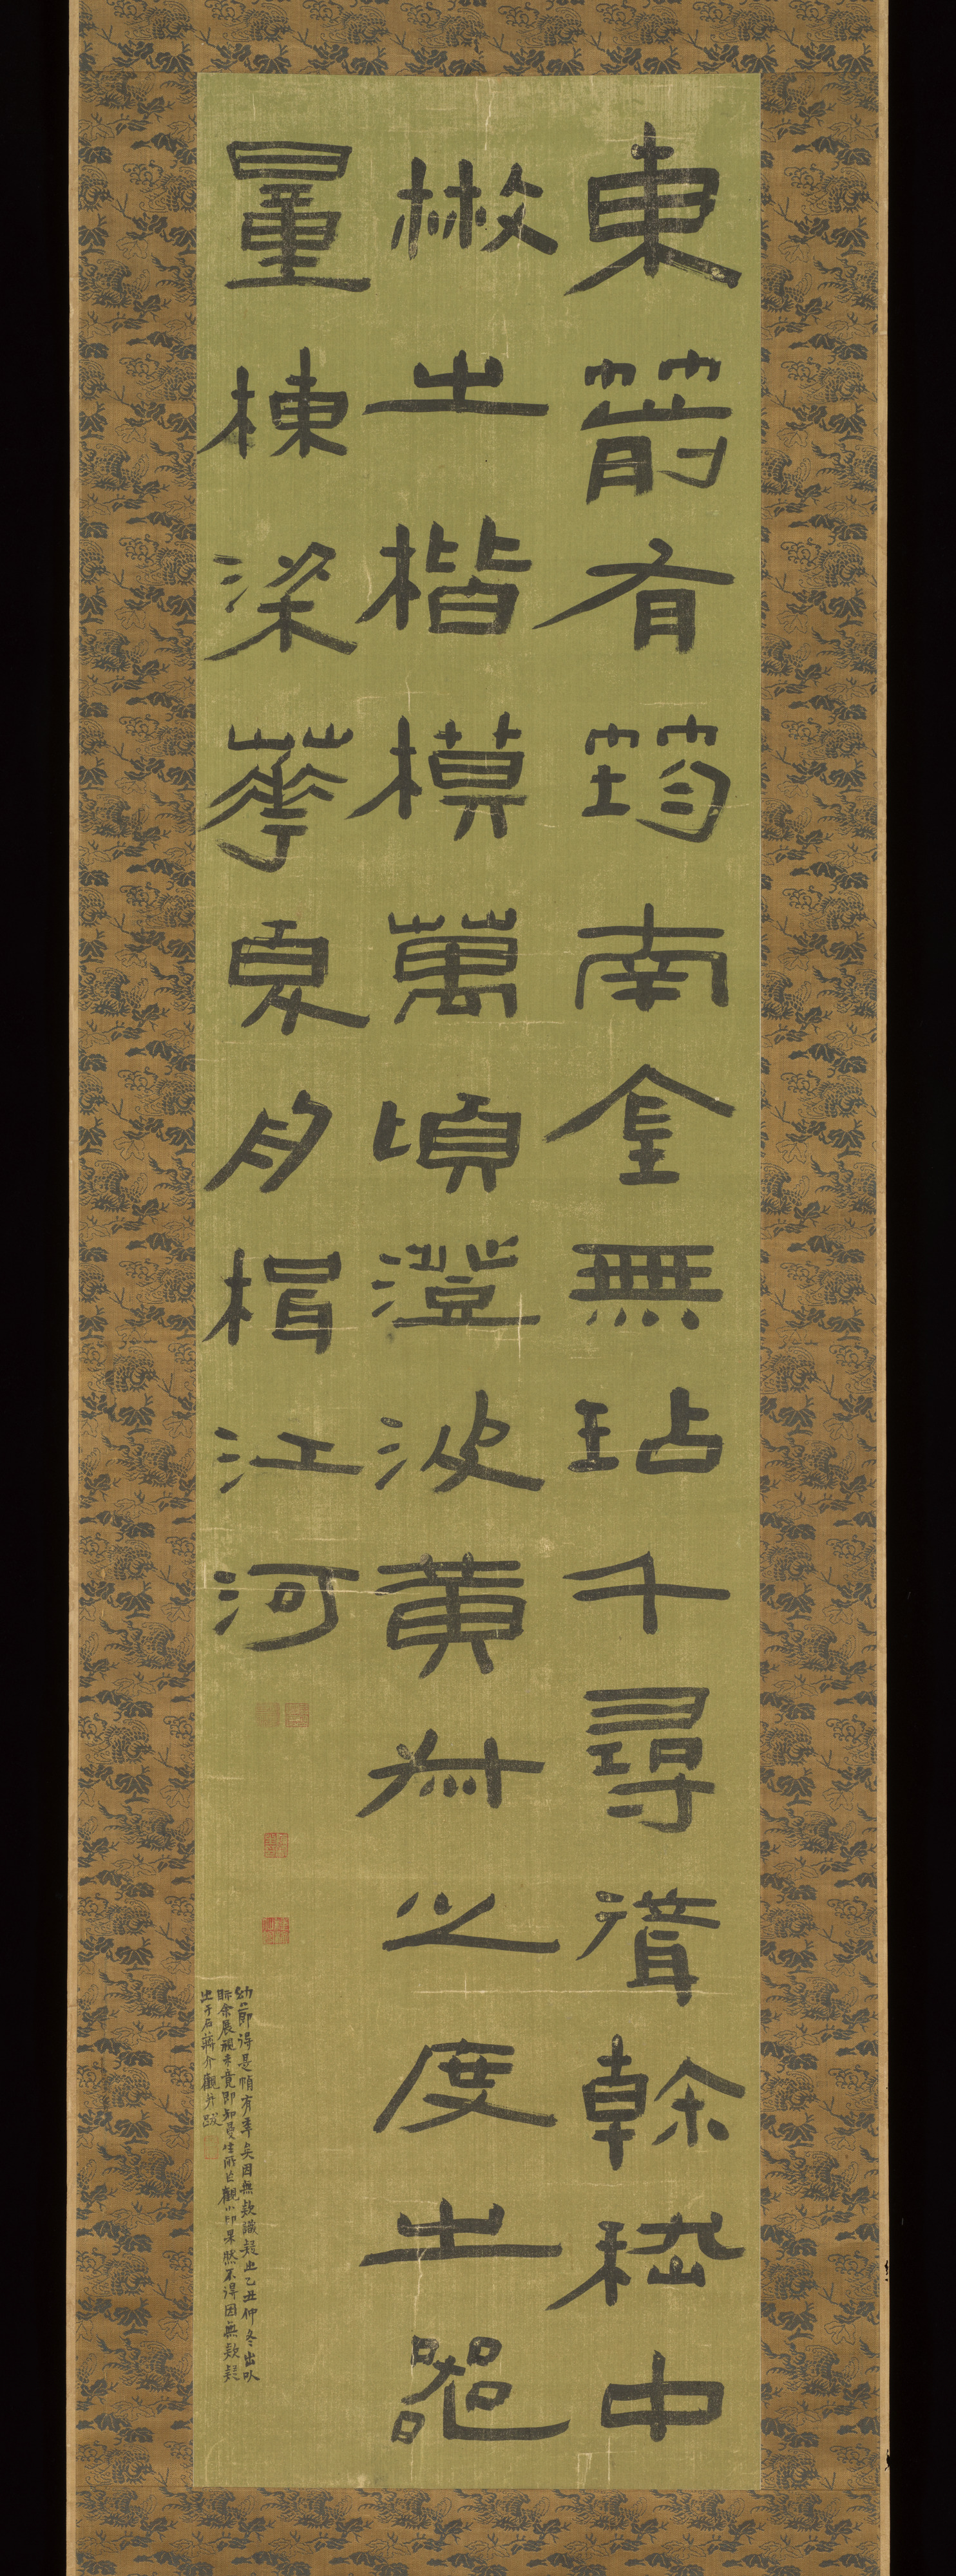 東箭有筠南金無玷千尋聳榦嵇中
散之楷模萬頃澄波黃叔度之器
量棟梁華夏舟楫江河
幼節得是幀有年矣因無款識疑之乙丑仲冬出以
眎余展視未竟即知曼生所作觀小印果然不得因無款疑
之于石蔣介觀并跋